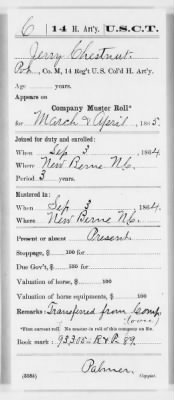 6 | 14 H. Art'y. | U.S.C.T.
Jerry Chestnut
Pvt., Co. M, 14 Reg't U.S. Col'd H. Art'y.
Age years.
Appears on
Company Muster Roll*
for March & April, 1865.
Joined for duty and enrolled:
When Sep 3, 1864.
Where New Berne N.C.
Period 3 years.
Mustered in:
When Sep 3, 1864.
Where New Berne N.C.
Present or absent Present
Stoppage, $ 100 for
Due Gov't, $ 100 for
Valuation of horse, $ 100
Valuation of horse equipments, $ 100
Remarks: Transferred from Comp
*First earliest roll. No muster-in roll of this company on file.
Book mark: 93305-R&P-89
Palmer
(358i) Copyist.